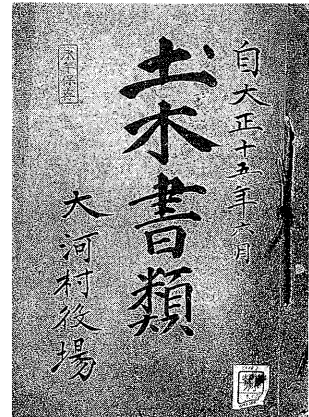 自大正十五年六月
土木書類
大河村役場